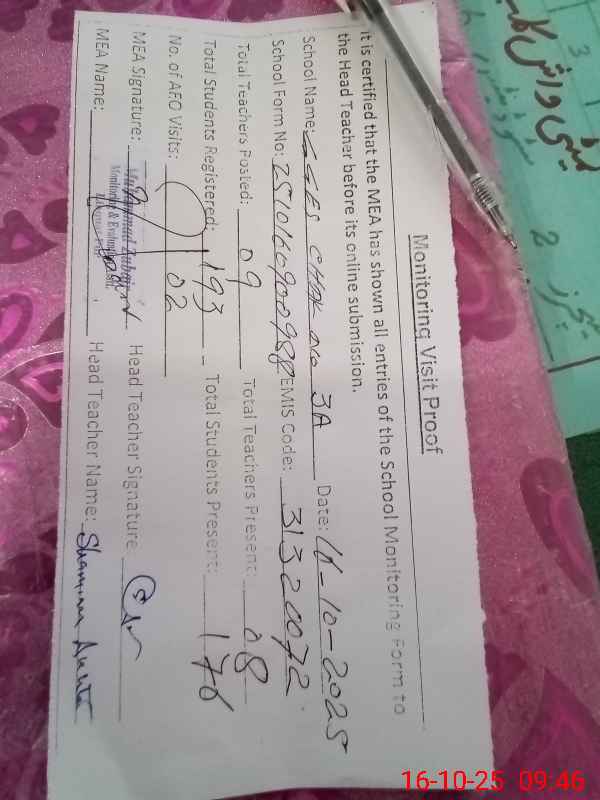 Monitoring Visit Proof
It is certified that the MEA has shown all entries of the School Monitoring Form to
the Head Teacher before its online submission.
School Name: GGES CHAK NO 3A Date: 16-10-2025
School Form No: 2510160900988 EMIS Code: 31320072
Total Teachers Posted: 09 Total Teachers Present: 08
Total Students Registered: 193 Total Students Present: 176
No. of AEO Visits: 02
MEA Signature: Head Teacher Signature
Muhammad Zubair
Monitoring & Evalu
MEA Name: Head Teacher Name: Shamim Akhtar
3
2
16-10-25 09:46